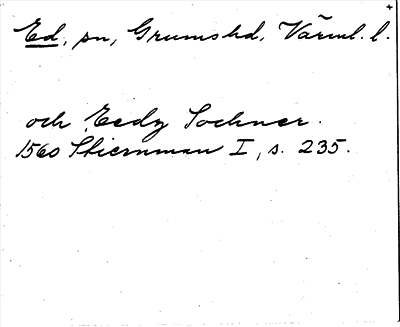 Ed, sn, Grums hd, Värml. l. +
och Eedz Sochner.
1560 Stiernman I, s. 235.